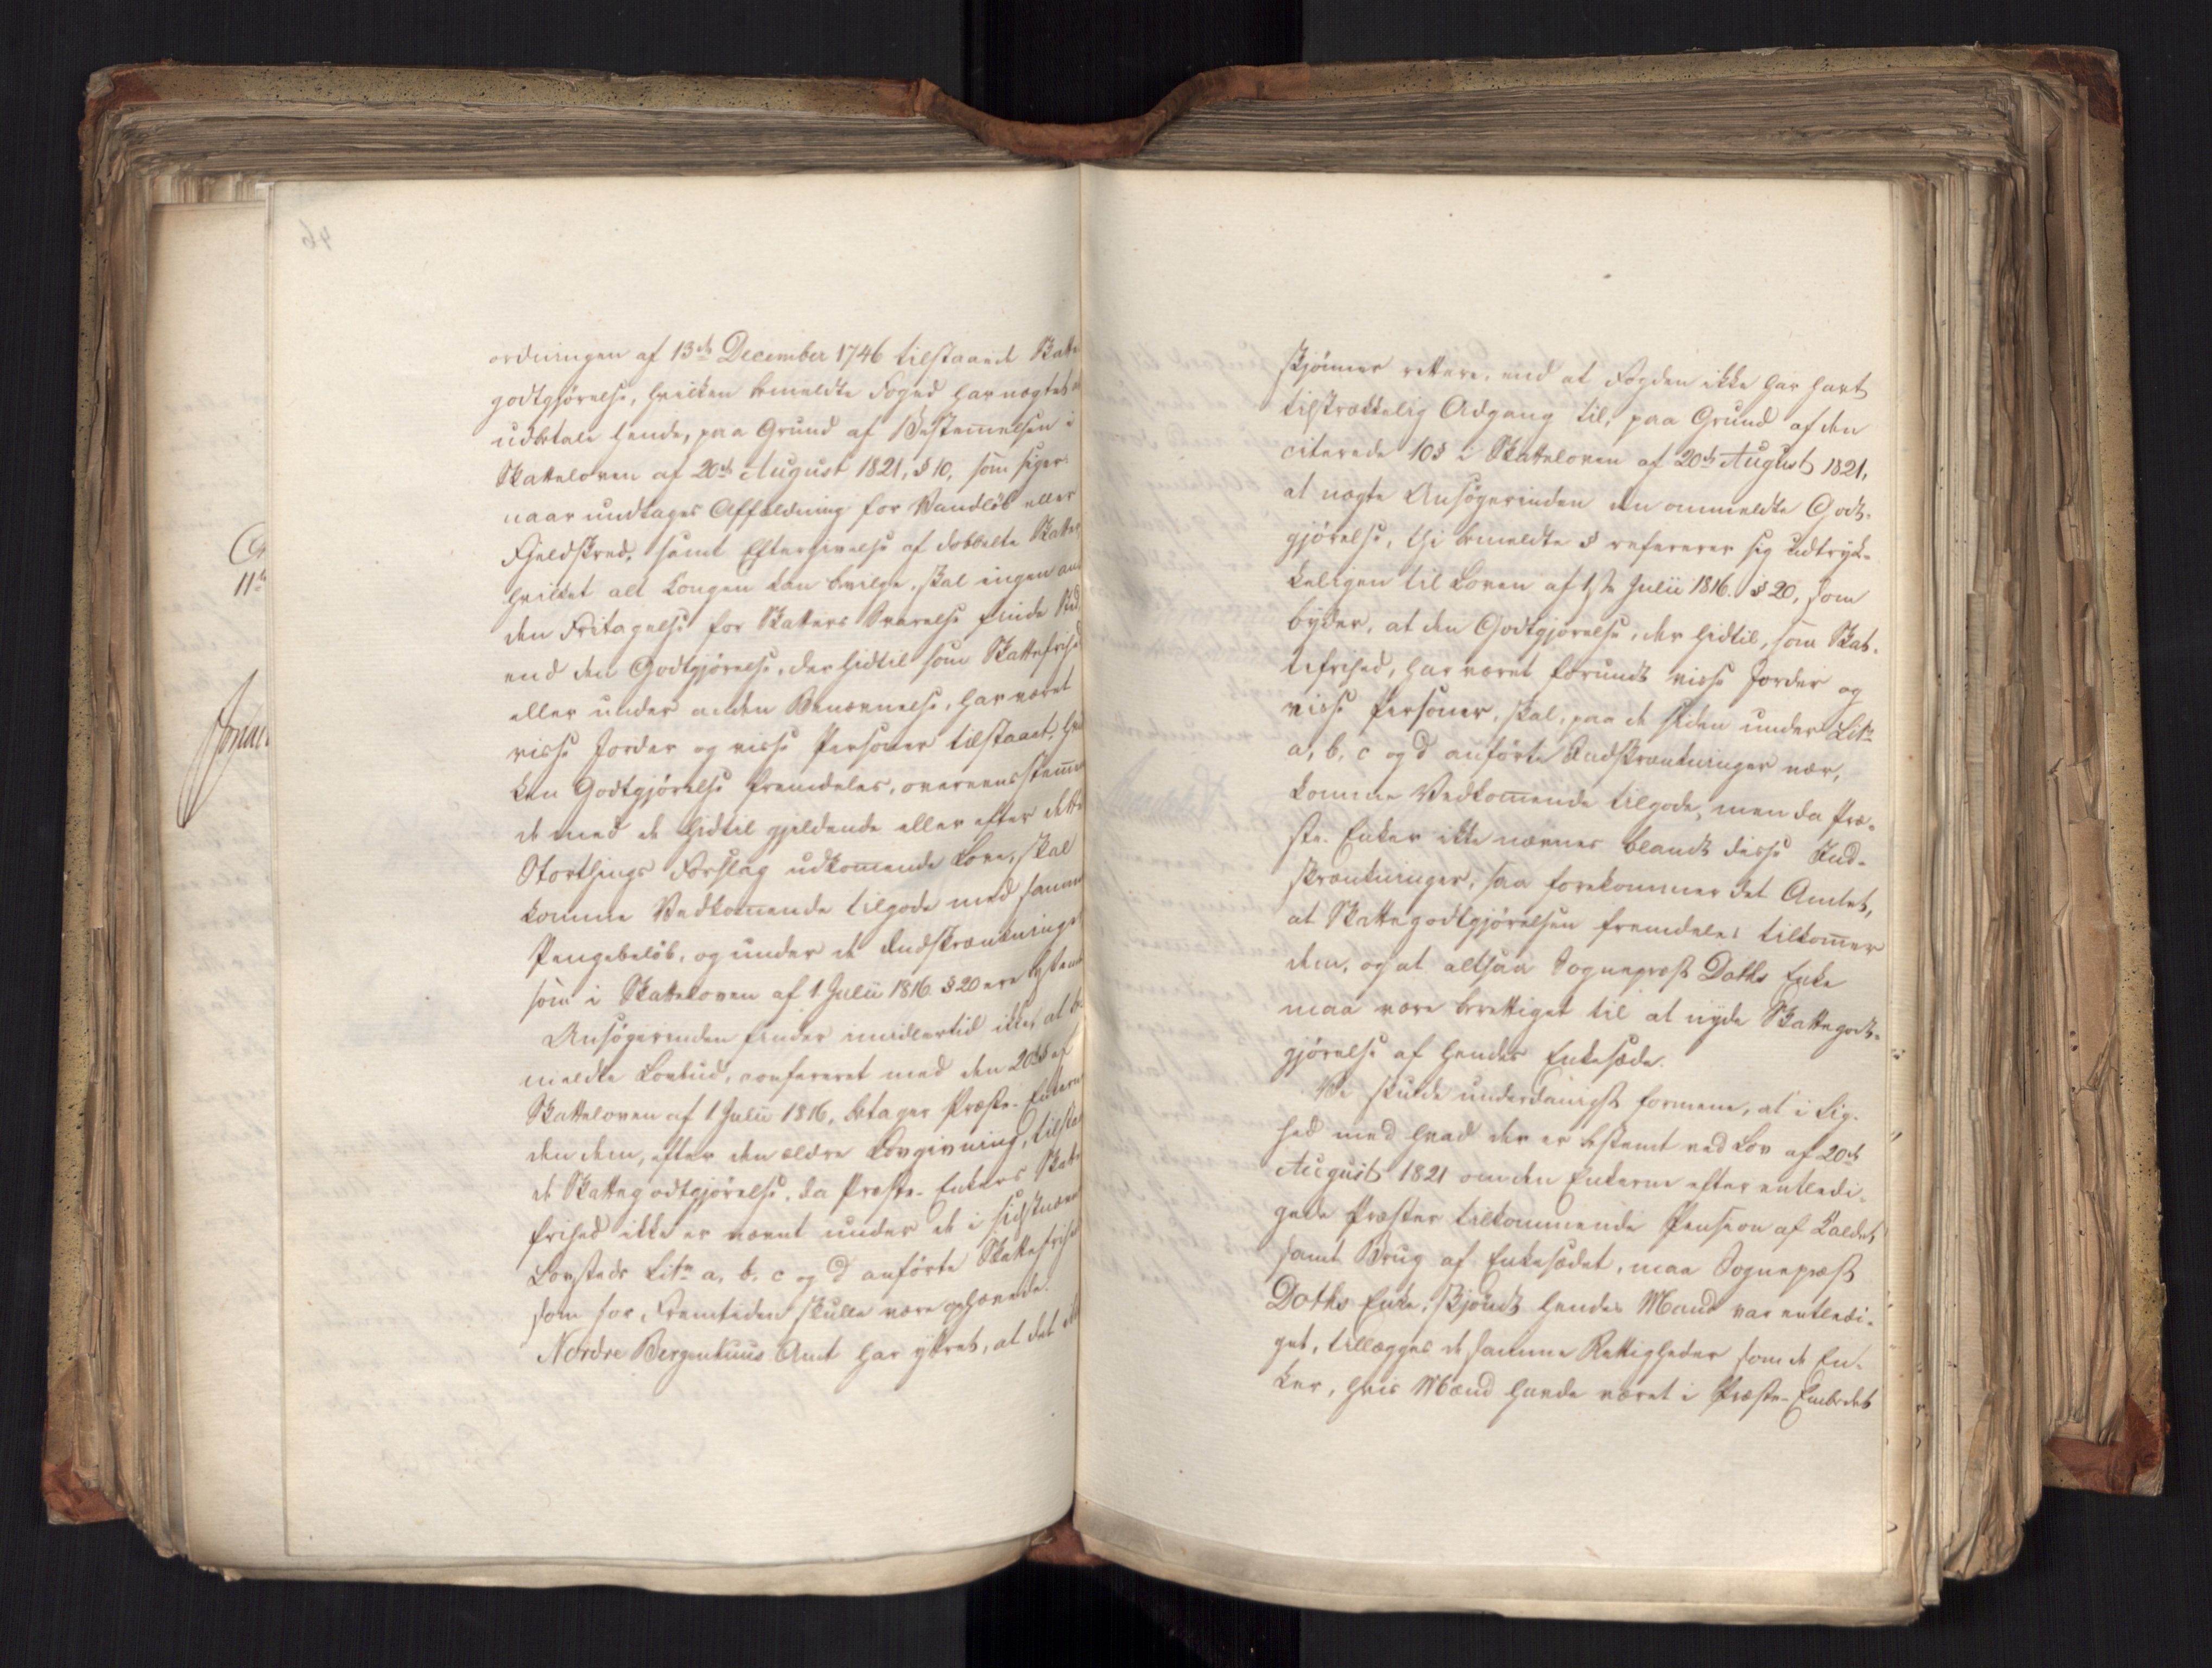 46
ordningen af 13de December 1746 tilstaaede Skatte
godtgjørelse, hvilken bemeldte Foged har nægtet at
udbetale hende, paa Grund af Bestemmelsen i
Skatteloven af 20de August 1821, § 10, som siger:
naar undtages Affældning for Vandløb eller
Fjeldskred, samt Eftergivelse af dobbelte Skatter,
hvilket alt Kongen kan bevilge, skal ingen an
den Fritagelse for Skatters Svarelse finde Sted,
end den Godtgjørelse, der hidtil som Skattefrihed
eller under anden Benævnelse, har været
visse Jorder og visse Personer tilstaaet, hvil
ken Godtgjørelse fremdeles, overeensstemmen
de med de hidtil gjeldende eller efter dette
Storthings Forslag udkommende Love, skal
komme Vedkommende tilgode med samme
Pengebeløb, og under de Indskrænkninger
som i Skatteloven af 1 Julii 1816 § 20 ere bestemte
Ansøgerinden finder imidlertid ikke, at be
meldte Lovbud, confereret med den 20de § af
Skatteloven af 1 Julii 1816, betager Præste-Enkerne
den dem, efter den ældre Lovgivning, tilstaae
de Skattegodtgjørelse, da Præste-Enkers Skatte
frihed ikke er nævnt under de i sidstnævnte
Lovsteds Litr a, b, c og d anførte Skattefriheder
som for Fremtiden skulle være ophævede.
Nordre Bergenhuus Amt har yttret, at det ikke
11te
skjønner rettere, end at Fogden ikke har havt
tilstrækkelig Adgang til, paa Grund af den
citerede 10 § i Skatteloven af 20de August 1821,
at nægte Ansøgerinden den ommeldte Godt-
gjørelse, thi bemeldte § refererer sig udtryk-
keligen til Loven af 1ste Julii 1816. § 20, som
byder, at den Godtgjørelse, der hidtil, som Skat-
tefrihed, har været forundt visse Jorder og
visse Personer, skal, paa de siden under Litr
a, b, c og d anførte Indskrænkninger nær,
komme Vedkommende tilgode, men da Præ-
ste-Enker ikke nævnes blandt disse Ind-
skrænkninger, saa forekommer det Amtet,
at Skattegodtgjørelsen fremdeles tilkommer
dem, og at altsaa Sognepræst Daths Enke
maa være berettiget til at nyde Skattegodt-
gjørelse af hendes Enkesæde.
Vi skulde underdanigst formene, at i Lig-
hed med hvad der er bestemt ved Lov af 20de
August 1821 om den Enkerne efter entledi-
gede Præster tilkommende Pension af Kaldet,
samt Brug af Enkesædet, maa Sognepræst
Daths Enke, skjøndt hendes Mand var entledi-
get, tillægges de samme Rettigheder som de En-
ker, hvis Mænd havde været i Præste-Embedet